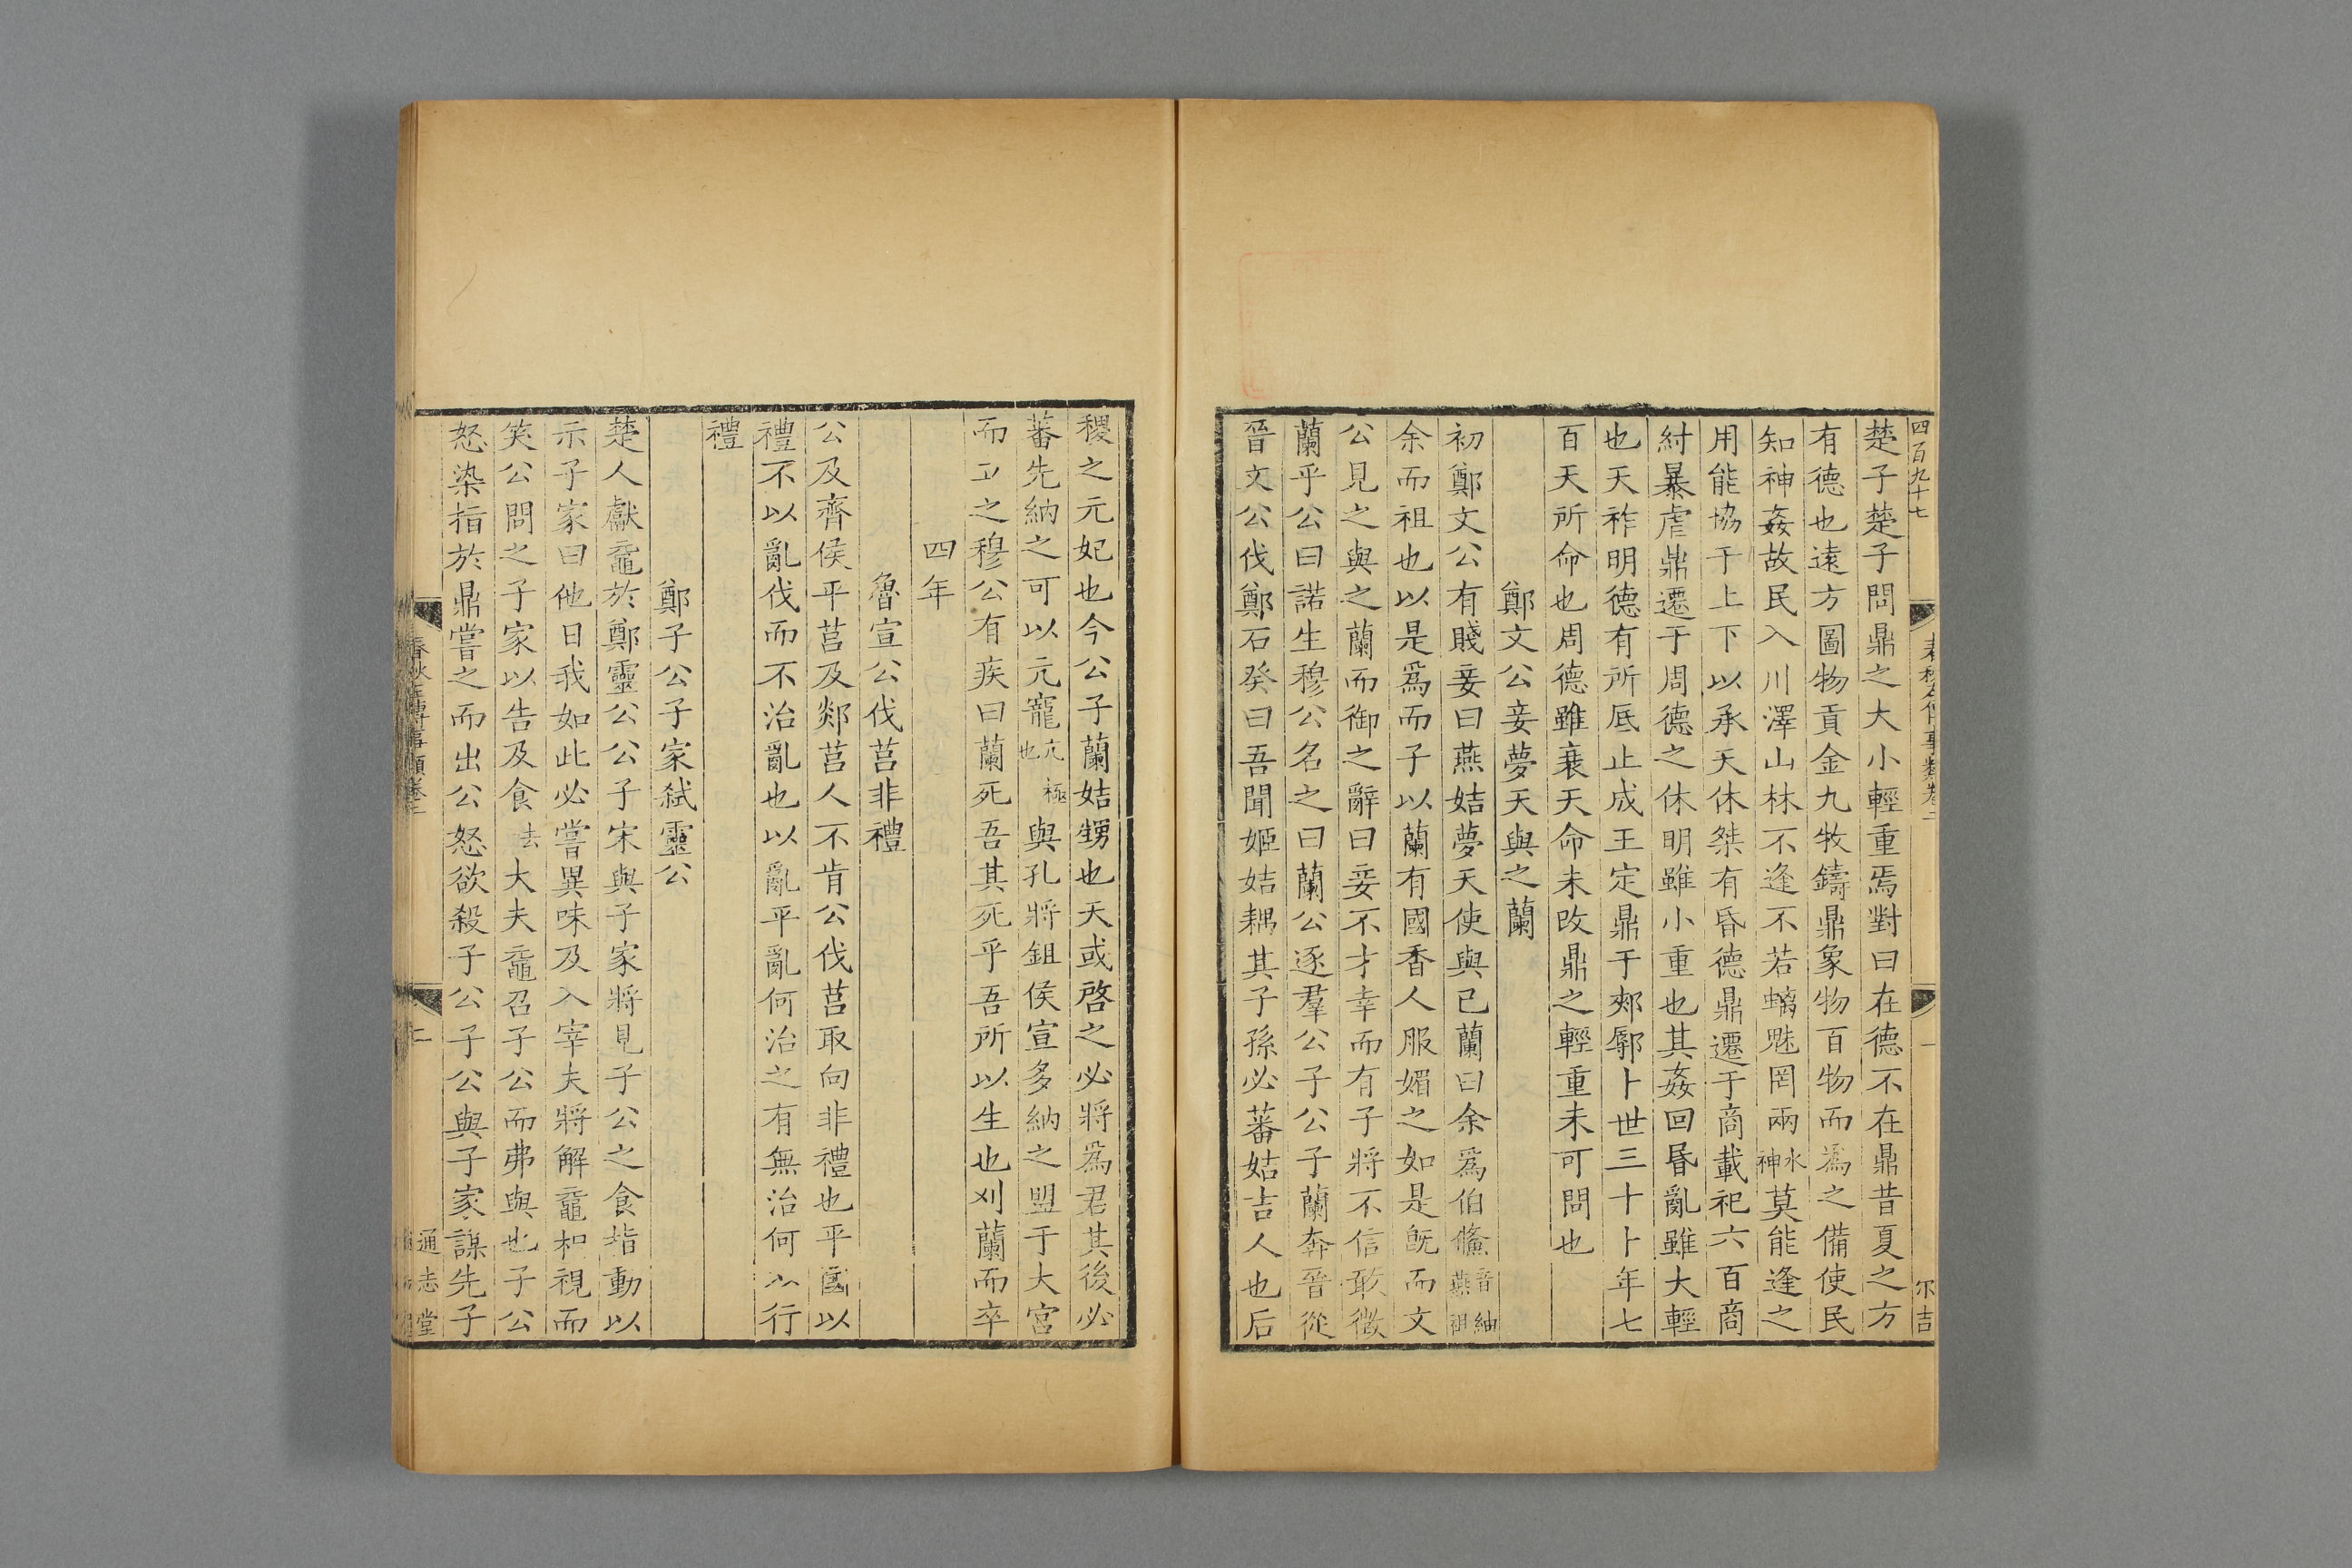 四百九十七
一
尔吉
楚子楚子問鼎之大小輕重焉對曰在德不在鼎昔夏之方
有德也遠方圖物貢金九牧鑄鼎象物百物而爲之備使民
知神姦故民入川澤山林不逢不若螭魅罔兩水神莫能逢之
用能協于上下以承天休桀有昏德鼎遷于商載祀六百商
紂暴虐鼎遷于周德之休明雖小重也其姦回昬亂雖大輕
也天祚明德有所底止成王定鼎于郟鄏卜世三十卜年七
百天所命也周德雖衰天命未改鼎之輕重未可問也
鄭文公妾夢天與之蘭
初鄭文公有賤妾曰燕姞夢天使與己蘭曰余爲伯鯈音紬燕祖
余而祖也以是爲而子以蘭有國香人服媚之如是旣而文
公見之與之蘭而御之辭曰妾不才幸而有子將不信敢徵
蘭乎公曰諾生穆公名之曰蘭公逐羣公子公子蘭奔晉從
晉文公伐鄭石癸曰吾聞姬姞耦其子孫必蕃姞吉人也后
稷之元妃也今公子蘭姞甥也天或啓之必將爲君其後必
蕃先納之可以亢寵亢極也與孔將鉏侯宣多納之盟于大宮
而立之穆公有疾曰蘭死吾其死乎吾所以生也刈蘭而卒
四年
魯宣公伐莒非禮
公及齊侯平莒及郯莒人不肯公伐莒取向非禮也平國以
禮不以亂伐而不治亂也以亂平亂何治之有無治何以行
禮
鄭子公子家弑靈公
楚人獻黿於鄭靈公公子宋與子家將見子公之食指動以
示子家曰他日我如此必嘗異味及入宰夫將解黿相視而
笑公問之子家以告及食去大夫黿召子公而弗與也子公
怒染指於鼎嘗之而出公怒欲殺子公子公與子家謀先子
春秋左傳事類卷二
二
通志堂